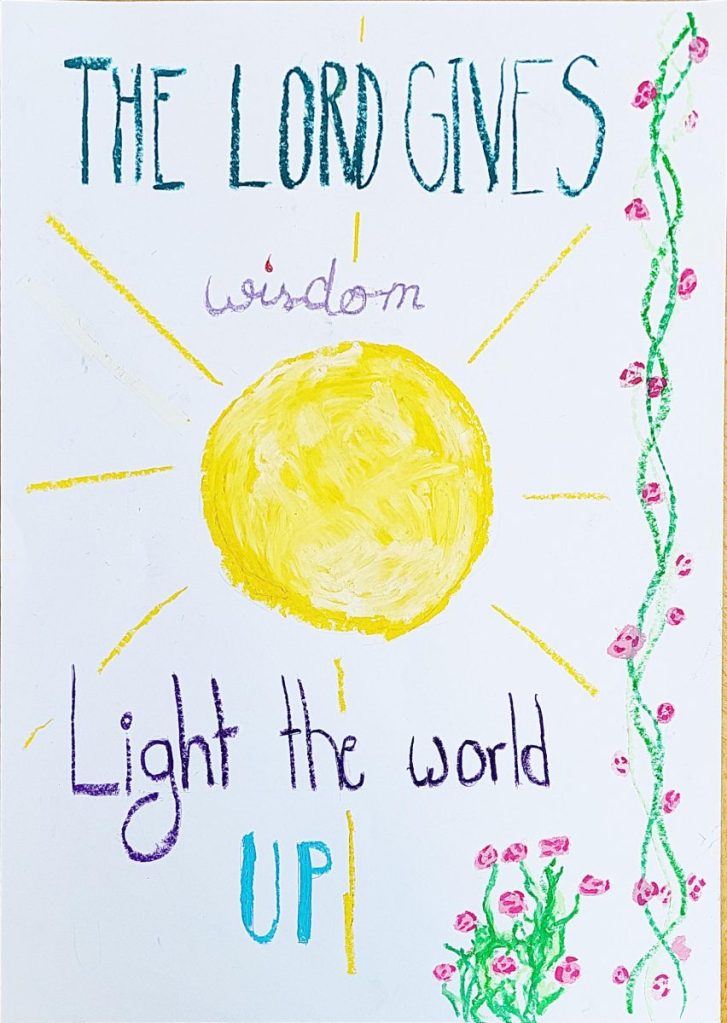 THE LORD GIVES
wisdom
Light the world
UP